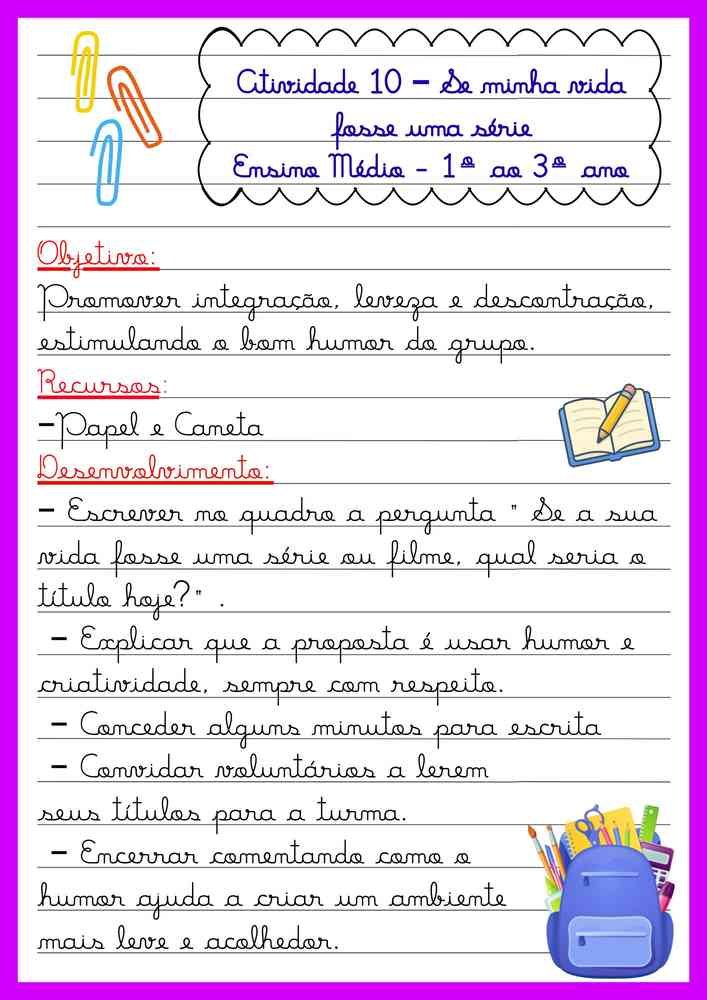 Atividade 10 – Se minha vida
fosse uma série
Ensino Médio - 1º ao 3º ano
Objetivo:
Promover integração, leveza e descontração,
estimulando o bom humor do grupo.
Recursos:
-Papel e Caneta
Desenvolvimento:
- Escrever no quadro a pergunta " Se a sua
vida fosse uma série ou filme, qual seria o
título hoje?" .
- Explicar que a proposta é usar humor e
criatividade, sempre com respeito.
- Conceder alguns minutos para escrita
- Convidar voluntários a lerem
seus títulos para a turma.
- Encerrar comentando como o
humor ajuda a criar um ambiente
mais leve e acolhedor.